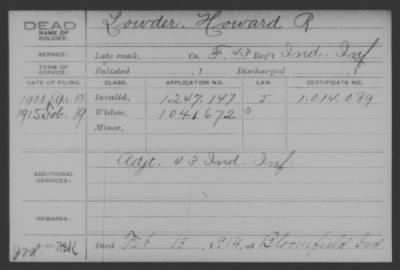 DEAD
NAME OF SOLDIER: Lowder, Howard R
SERVICE: Late rank, Co. F, 43 Reg't Ind. Inf
TERM OF SERVICE: Enlisted , 1 Discharged , 1
DATE OF FILING. CLASS. APPLICATION NO. LAW. CERTIFICATE NO.
1900 Invalid, 1247.147 J. 1.014.089
1915 Feb. 19 Widow, 1041672 O
Minor,
ADDITIONAL SERVICES: Adjt. 43 Ind. Inf
REMARKS:
Died Feb 13, 1914, at Bloomfield Ind